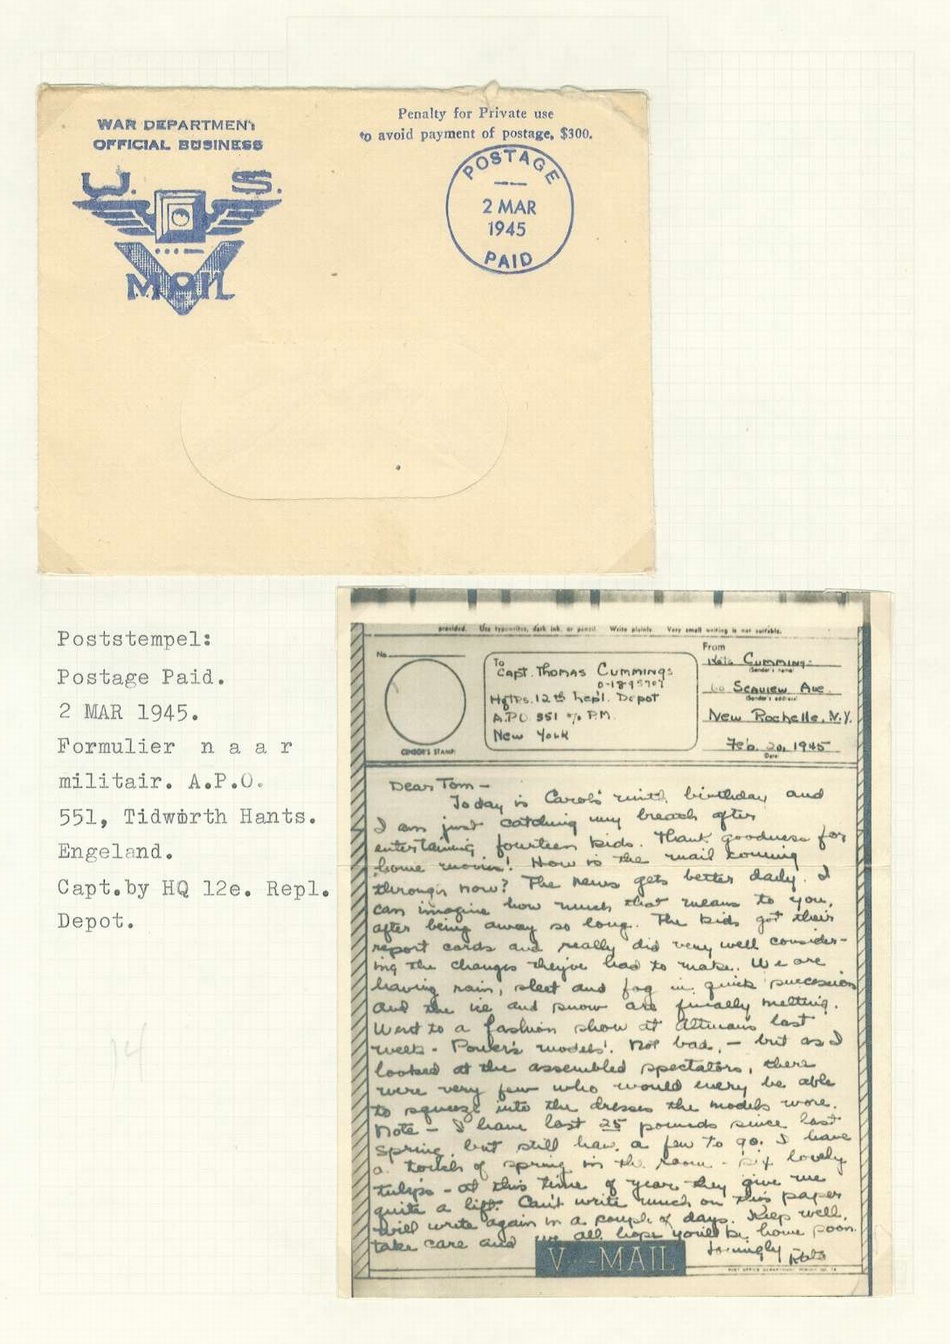 WAR DEPARTMENT
OFFICIAL BUSINESS
U. S.
MAIL
Penalty for Private use
to avoid payment of postage, $300.
POSTAGE
2 MAR
1945
PAID
Poststempel:
Postage Paid.
2 MAR 1945.
Formulier n a a r
militair. A.P.O.
551, Tidworth Hants.
Engeland.
Capt.by HQ 12e. Repl.
Depot.
14
provided. Use typewriter, dark ink, or pencil. Write plainly. Very small writing is not suitable.
No.
CENSOR'S STAMP
To
Capt. Thomas Cummings
Hqtrs. 12th Repl. Depot
A.P.O 551 % P.M.
New York
From
Cummings
(Sender's name)
Seaview Ave.
(Sender's address)
New Rochelle, N.Y.
Feb. 20, 1945
Date
Dear Tom —
Today is Carol's ninth birthday and
I am just catching my breath after
entertaining fourteen kids. Thank goodness for
home movies! How is the mail coming
through now? The news gets better daily. I
can imagine how much that means to you,
after being away so long. The kids got their
report cards and really did very well consider-
ing the changes they've had to make. We are
having rain, sleet and fog in quick succession
and the ice and snow are finally melting.
Went to a fashion show at Altman's last
week - Power's models! Not bad, — but as I
looked at the assembled spectators, there
were very few who would every be able
to squeeze into the dresses the models wore.
Note — I have lost 25 pounds since last
Spring, but still have a few to go. I have
a touch of spring in the room - six lovely
tulips - at this time of year they give me
quite a lift. Can't write much on this paper
Will write again in a couple of days. Keep well,
take care and we all hope you'll be home soon.
Lovingly
V-MAIL